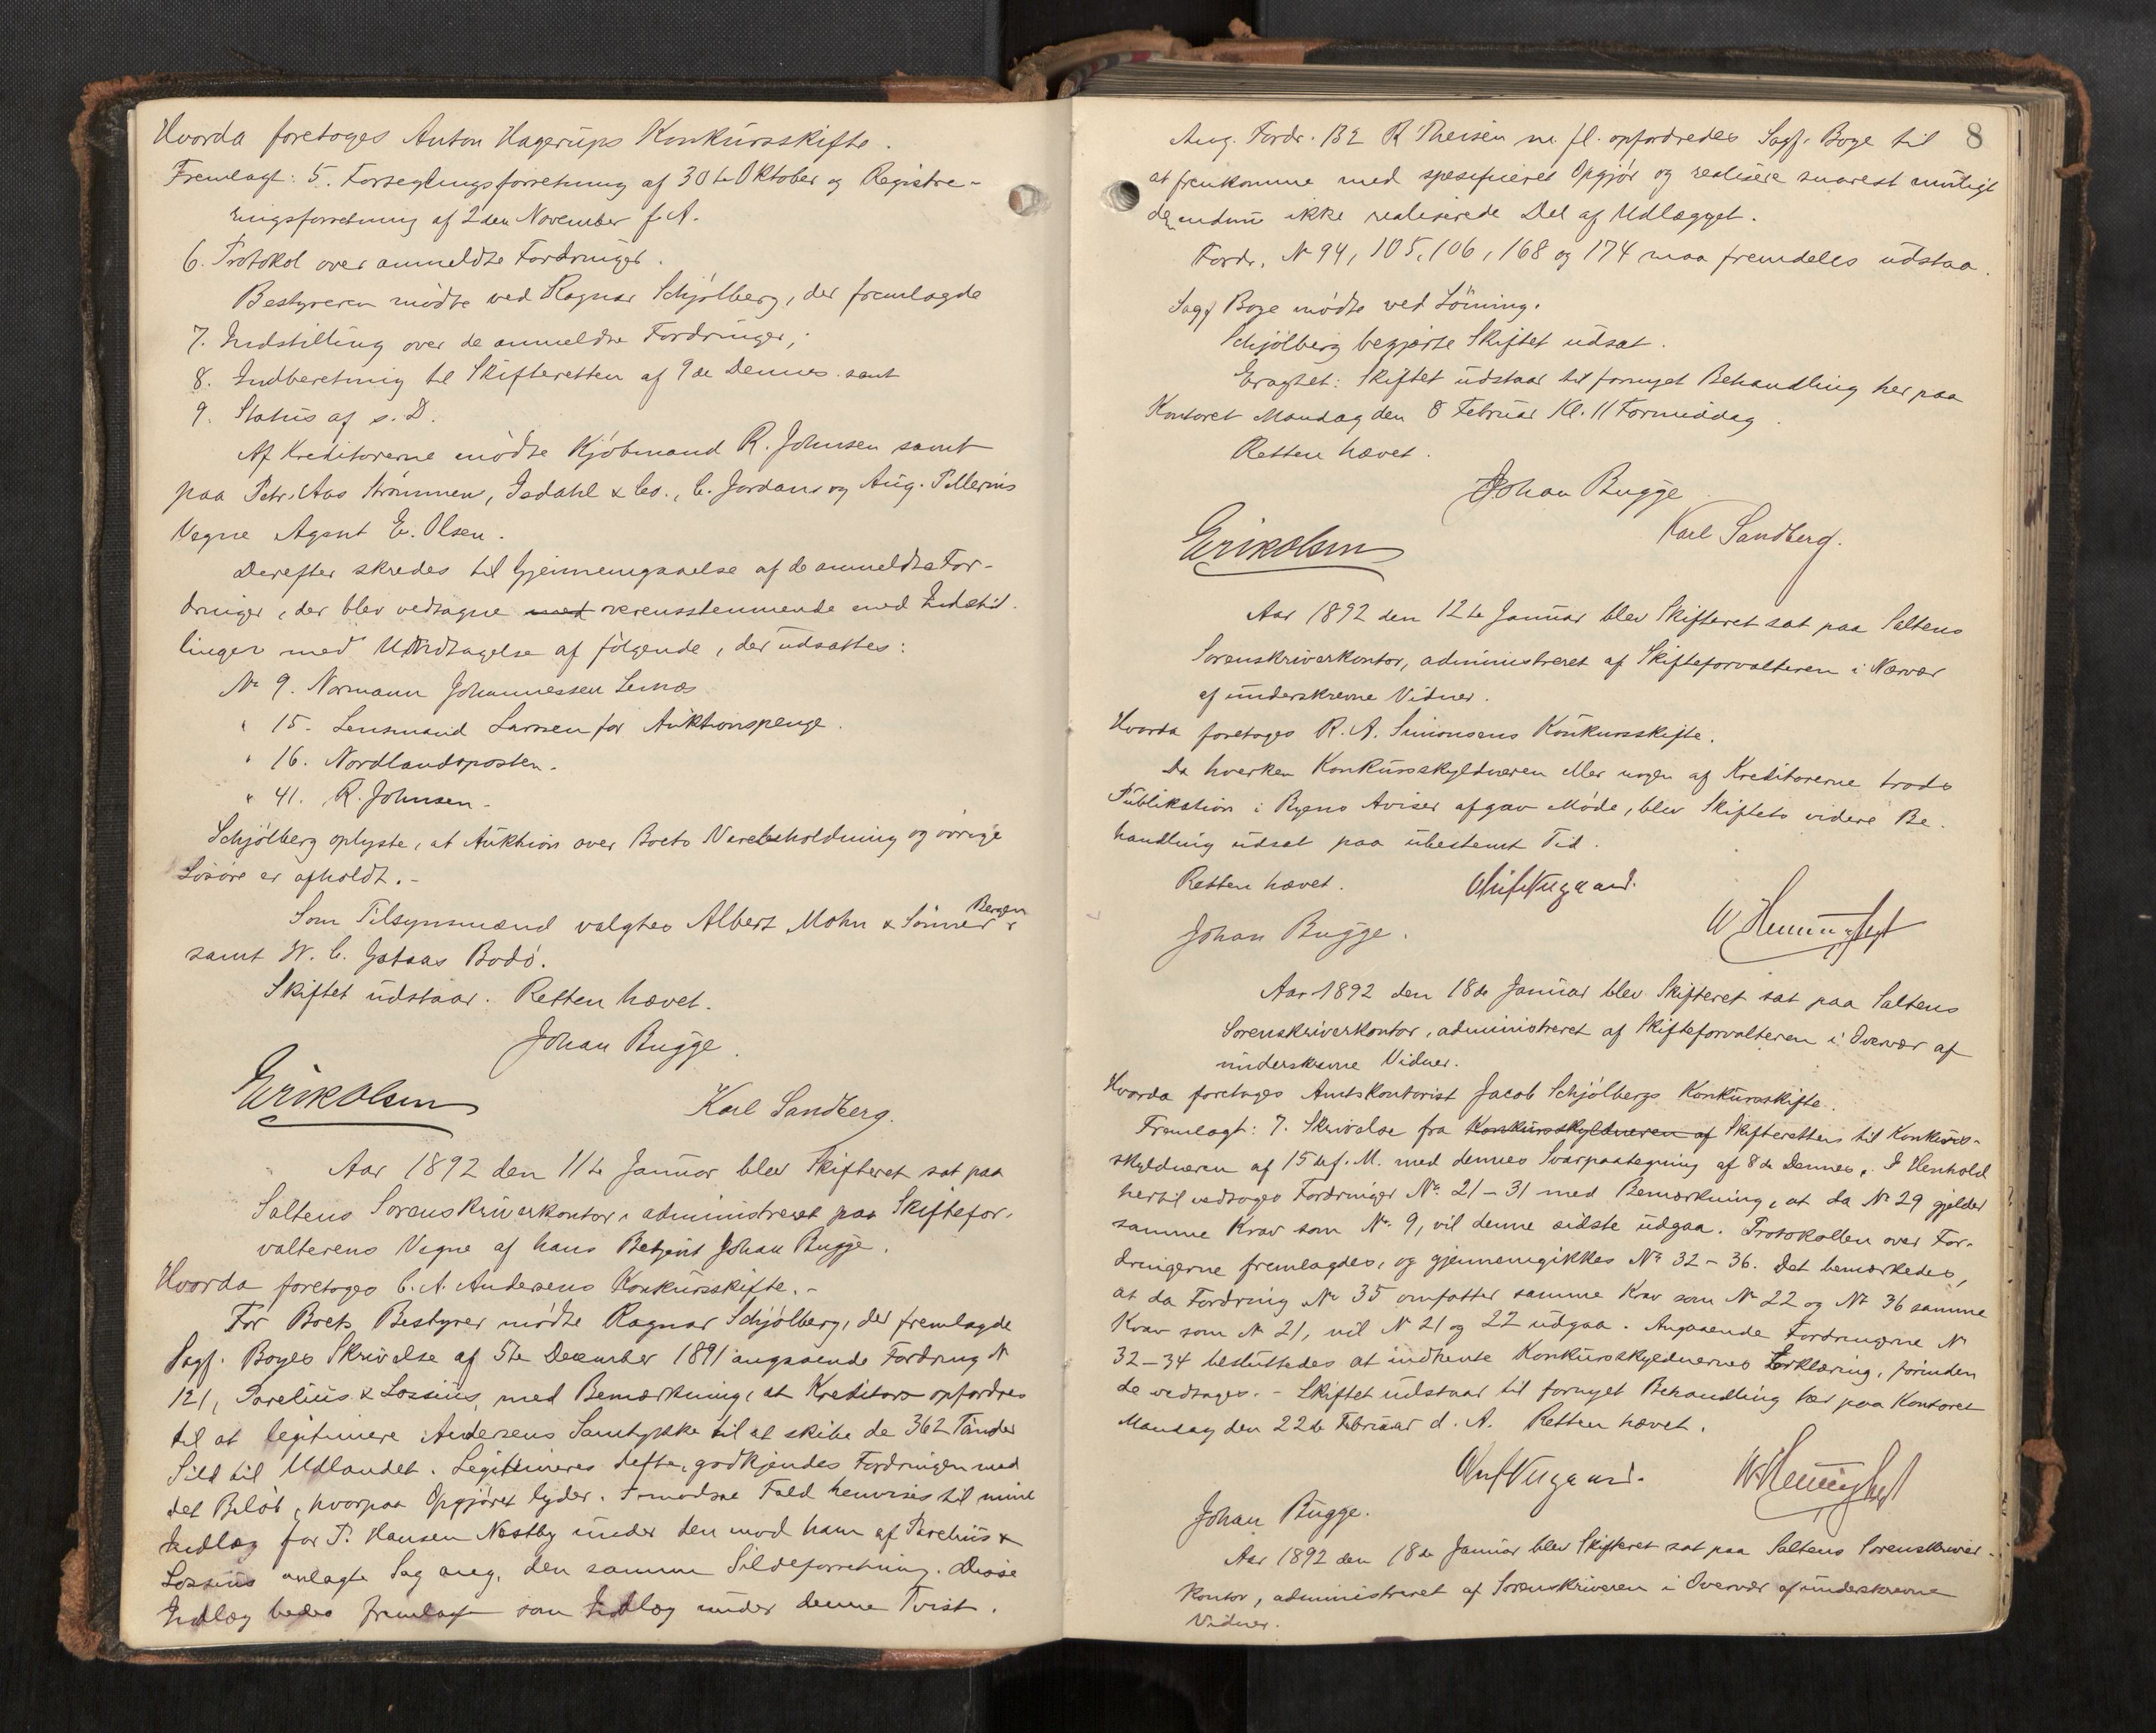 Hvorda foretoges Anton Hagerups Konkursskifte.
Fremlagt: 5. Forseglingsforretning af 30te Oktober og Registre-
ringsforretning af 2den November f. A.
6. Protokol over anmeldte Fordringer.
Bestyreren mødte ved Ragnar Schjølberg, der fremlagde
7. Indstilling over de anmeldte Fordringer,
8. Indberetning til Skifteretten af 9de Dennes samt
9. Status af s. D.
Af Kreditorerne mødte Kjøbmand R. Johnsen samt
paa Petr. Aas Strømmen, Isdahl & Co., C. Jordans og Aug. Pellerins
Vegne Agent E. Olsen.
Derefter skredes til Gjennemgaaelse af de anmeldte For-
dringer, der blev vedtagne med overensstemmende med Indstil-
linger med Undtagelse af følgende, der udsattes:
No 9. Normann Johannessen
" 15. Lensmand Larsen for Auktionspenge.
" 16. Nordlandsposten.
" 41. R. Johnsen.
Schjølberg oplyste, at Auktion over Boets Varebeholdning og øvrige
Løsøre er afholdt.-
Som Tilsynsmænd valgtes Albert Mohn & Sønner Bergen
samt W. C. Bodø.
Skiftet udstaar. Retten hævet.
Johan Bugge.
Erik Olsen
Karl Sandberg.
Aar 1892 den 11te Januar blev Skifteret sat paa
Saltens Sorenskriverkontor, administreret paa Skiftefor-
valterens Vegne af hans Betjent Johan Bugge.
Hvorda foretoges C. A. Andersens Konkursskifte.-
For Boets Bestyrer mødte Ragnar Schjølberg, der fremlagde
Sagf. Boyes Skrivelse af 5te December 1891 angaaende Fordring N
121, Parelius & Lossius, med Bemærkning, at Kreditors opfordres
til at legitimere Andersens Samtykke til at skibe de 362 Tønder
Sild til Udlandet. Legitimeres dette, godkjendes Fordringen med
det Beløb, hvorpaa Opgjøret lyder. I modsat Fald henvises til mine
Indlæg for P. Hansen Næstby under den mod ham af Parelius &
Lossius anlagte Sag ang. den samme Sildeforretning. Disse
Indlæg bedes fremlagt som Indlæg under denne Tvist.
8
Ang. Fordr. 132 R Theisen m. fl. opfordredes Sagf. Boye til
at fremkomme med spesificeret Opgjør og realisere snarest muligt
den endnu ikke realiserede Del af Udlægget.
Fordr. N 94, 105, 106, 168 og 174 maa fremdeles udstaa.
Sagf Boye mødte ved Lönning.
Schjølberg begjærte Skiftet udsat.
Eragtet: Skiftet udstaar til fornyet Behandling her paa
Kontoret Mandag den 8 Februar Kl. 11 Formiddag.
Retten hævet.
Johan Bugge
Erik Olsen
Karl Sandberg.
Aar 1892 den 12te Januar blev Skifteret sat paa Saltens
Sorenskriverkontor, administreret af Skifteforvalteren i Nærvær
af underskrevne Vidner.
Hvorda foretoges R. A. Simonsens Konkursskifte.
Da hverken Konkursskyldneren eller nogen af Kreditorerne trods
Publikation i Byens Aviser afgav Møde, blev Skiftets videre Be-
handling udsat paa ubestemt Tid.
Retten hævet.
Johan Bugge.
Aar 1892 den 18de Januar blev Skifteret sat paa Saltens
Sorenskriverkontor, administreret af Skifteforvalteren i Overvær af
underskrevne Vidner.
Hvorda foretoges Amtskontorist Jacob Schjølbergs Konkursskifte.
Fremlagt: 7. Skrivelse fra Konkursskyldneren af Skifteretten til Konkurs-
skyldneren af 15de f. M. med dennes Svarpaategning af 8de Dennes. I Henhold
hertil vedtoges Fordringer No. 21-31 med Bemærkning, at da No 29 gjelder
samme Krav som No. 9, vil denne sidste udgaa. Protokollen over For-
dringerne fremlagdes, og gjennemgikkes No 32-36. Det bemærkedes,
at da Fordring No 35 omfatter samme Krav som No 22 og No 36 samme
Krav som N 21, vil N 21 og 22 udgaa. Angaaende Fordringerne N
32-34 besluttedes at indhente Konkursskyldnernes Erklæring, forinden
de vedtages.- Skiftet udstaar til fornyet Behandling her paa Kontoret
Mandag den 22de Februar d. A. Retten hævet.
Johan Bugge.
Aar 1892 den 18de Januar blev Skifteret sat paa Saltens Sorenskriver-
kontor, administreret af Sorenskriveren i Overvær af underskrevne
Vidner.